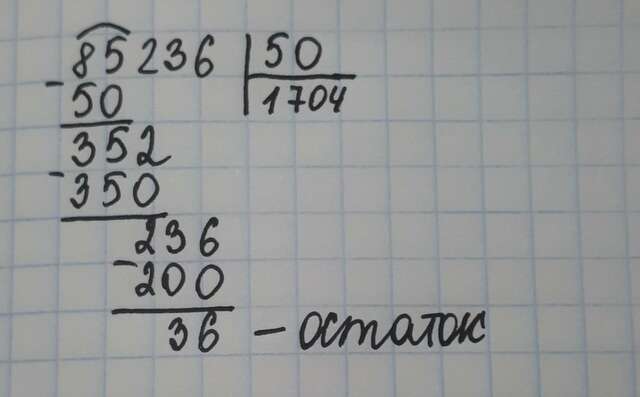 85236 50
- 50 1704
352
- 350
236
- 200
36 - остаток